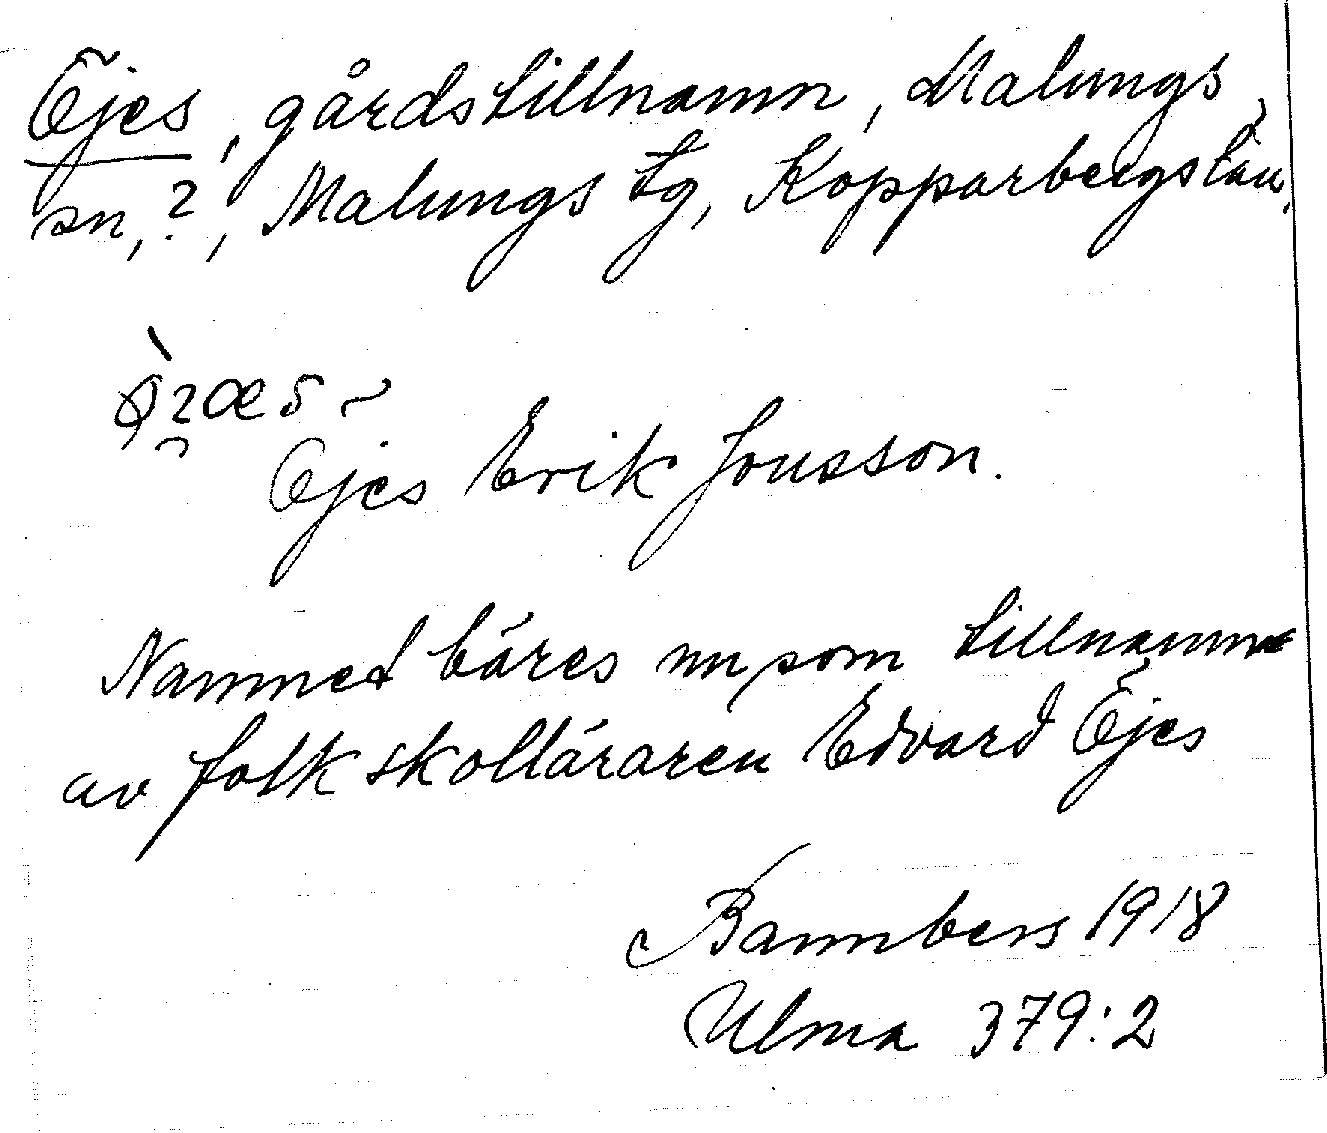 Öjes, gårdstillnamn, Malungs
sn, ?, Malungs tg, Kopparbergs län.
Öjes Erik Jonsson.
Namnet bäres nu som tillnamn
av folkskolläraren Edvard Öjes
Bannbers 1918
Ulma 379:2